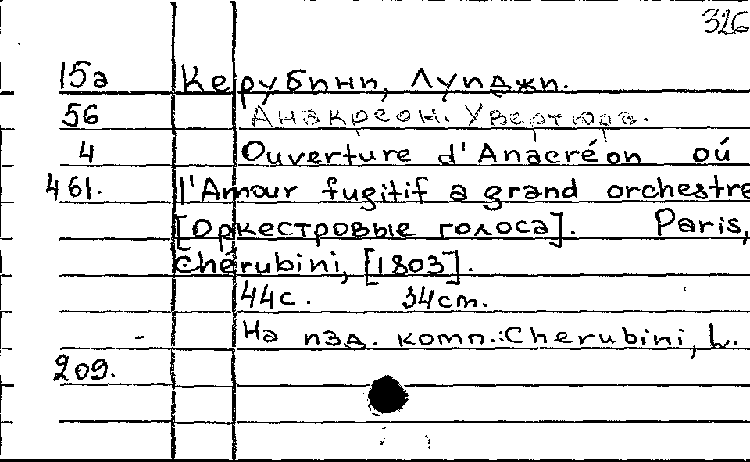 326
15а Керубини, Луиджи.
56 Анакреон. Увертюра.
4 Ouverture d'Anacréon oú
461. l'Amour fugitif a grand orchestre
[Оркестровые голоса]. Paris,
Chérubini, [1803].
44с. 34cm.
На изд. комп.: Cherubini, L.
209.